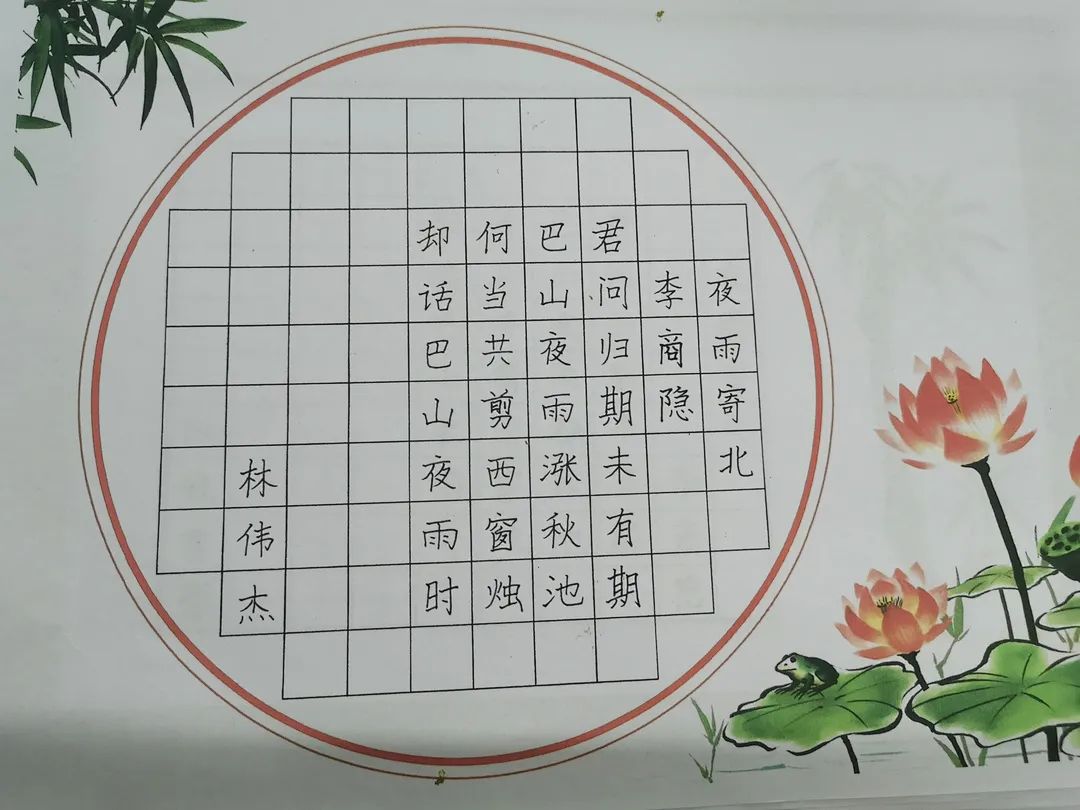 夜雨寄北
李商隐
君问归期未有期
巴山夜雨涨秋池
何当共剪西窗烛
却话巴山夜雨时
林伟杰